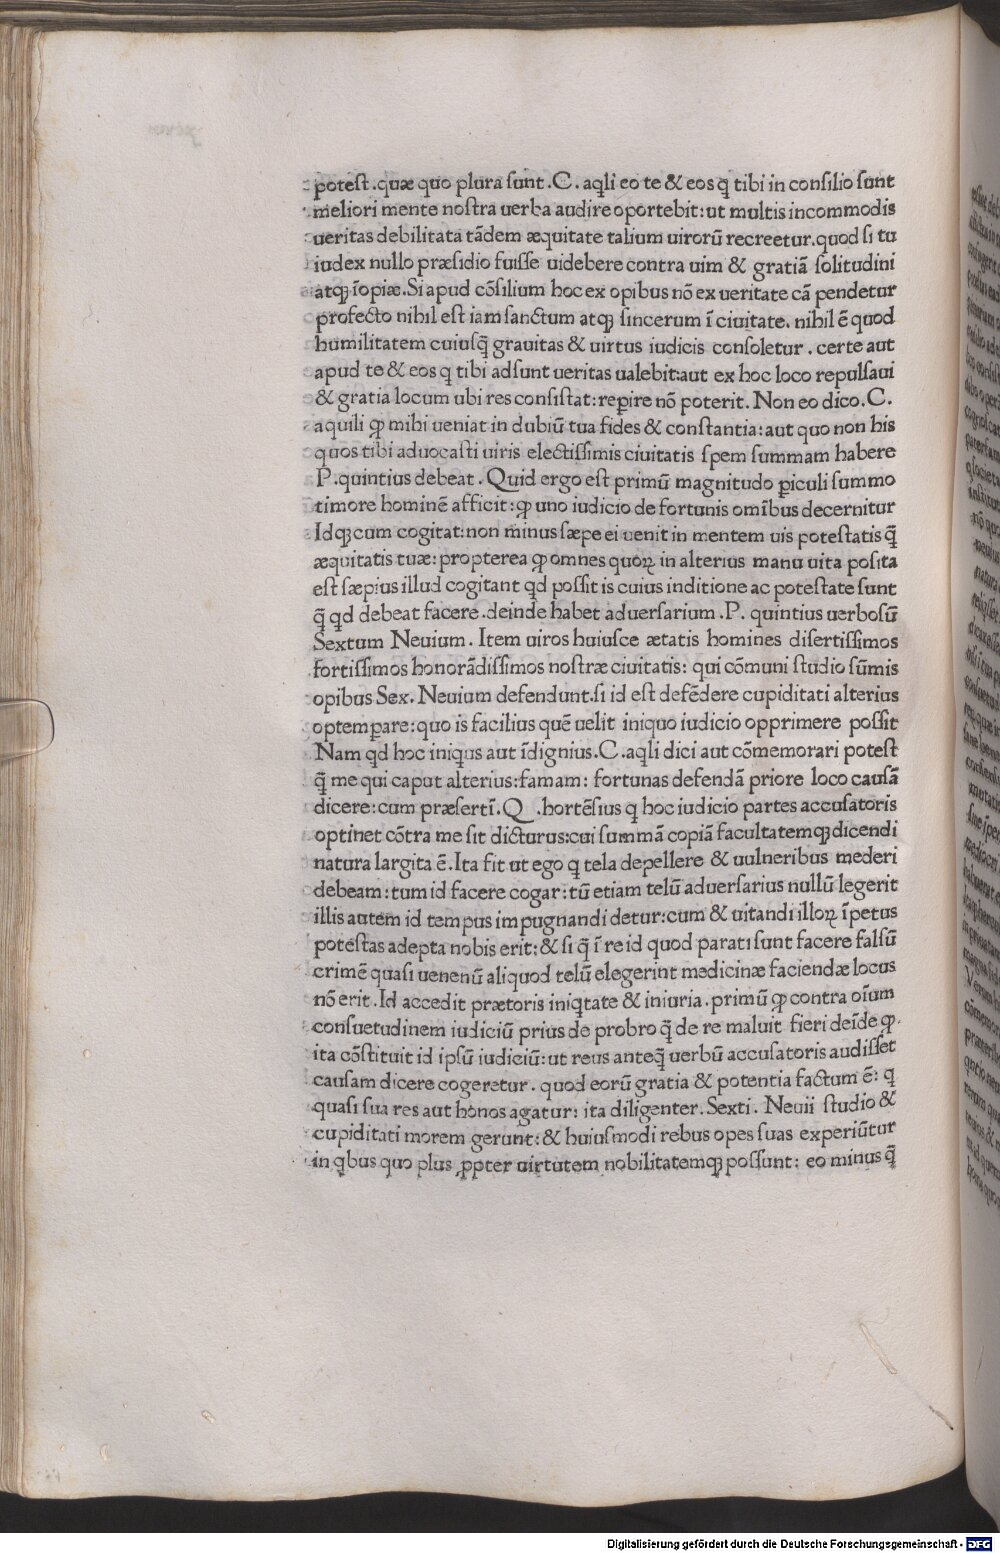 potest .quæ quo plura sunt .C. aq̄li eo te & eos q̄ tibi in consilio sunt
meliori mente nostra uerba audire oportebit:ut multis incommodis
ueritas debilitata tādem æquitate talium uirorū recreetur.quod si tu
iudex nullo præsidio fuisse uidebere contra uim & gratiā solitudini
atq; īopiæ.Si apud cōsilium hoc ex opibus nō ex ueritate cā pendetur
profecto nihil est iam sanctum atq; sincerum ī ciuitate. nihil ē quod
humilitatem cuiusq̄ grauitas & uirtus iudicis consoletur . certe aut
apud te & eos q̄ tibi adsunt ueritas ualebit:aut ex hoc loco repulsa ui
& gratia locum ubi res consistat: reꝑire nō poterit. Non eo dico .C.
aquili ꝙ mihi ueniat in dubiū tua fides & constantia: aut quo non his
quos tibi aduocasti uiris electissimis ciuitatis spem summam habere
P. quintius debeat . Quid ergo est primū magnitudo ꝑiculi summo
timore hominē afficit: ꝙ uno iudicio de fortunis omībus decernitur
Idq; cum cogitat: non minus sæpe ei uenit in mentem uis potestatis q̄
æquitatis tuæ: propterea ꝙ omnes quoꝝ in alterius manu uita posita
est sæpius illud cogitant qd possit is cuius inditione ac potestate sunt
q̄ qd debeat facere .deinde habet aduersarium .P. quintius uerbosū
Sextum Neuium . Item uiros huiusce ætatis homines disertissimos
fortissimos honorādissimos nostræ ciuitatis: qui cōmuni studio sūmis
opibus Sex. Neuium defendunt.si id est defēdere cupiditati alterius
optemꝑare: quo is facilius quē uelit iniquo iudicio opprimere possit
Nam qd hoc iniqus aut īdignius .C. aq̄li dici aut cōmemorari potest
q̄ me qui caput alterius: famam: fortunas defendā priore loco causā
dicere: cum præsertī. Q .hortēsius q̄ hoc iudicio partes accusatoris
optinet cōtra me sit dicturus: cui summā copiā facultatemq; dicendi
natura largita ē. Ita fit ut ego q̄ tela depellere & uulneribus mederi
debeam: tum id facere cogar: tū etiam telū aduersarius nullū iegerit
illis autem id tempus impugnandi detur: cum & uitandi illoꝝ īpetus
potestas adepta nobis erit: & si q̄ ī re id quod parati sunt facere falsū
crimē quasi uenenū aliquod telū elegerint medicinæ faciendæ locus
nō erit . Id accedit prætoris iniq̄tate & iniuria . primū ꝙ contra oīum
consuetudinem iudiciū prius de probro q̄ de re maluit fieri deīde ꝙ
ita cōstituit id ipsū iudiciū: ut reus anteq̄ uerbū accusatoris audisset
causam dicere cogeretur . quod eorū gratia & potentia factum ē: q̄
quasi sua res aut honos agatur: ita diligenter . Sexti . Neuii studio &
cupiditati morem gerunt: & huiusmodi rebus opes suas experiūtur
in q̄bus quo plus ꝓpter uirtutem nobilitatemq; possunt: eo minus q̄
Digitalisierung gefördert durch die Deutsche Forschungsgemeinschaft - DFG